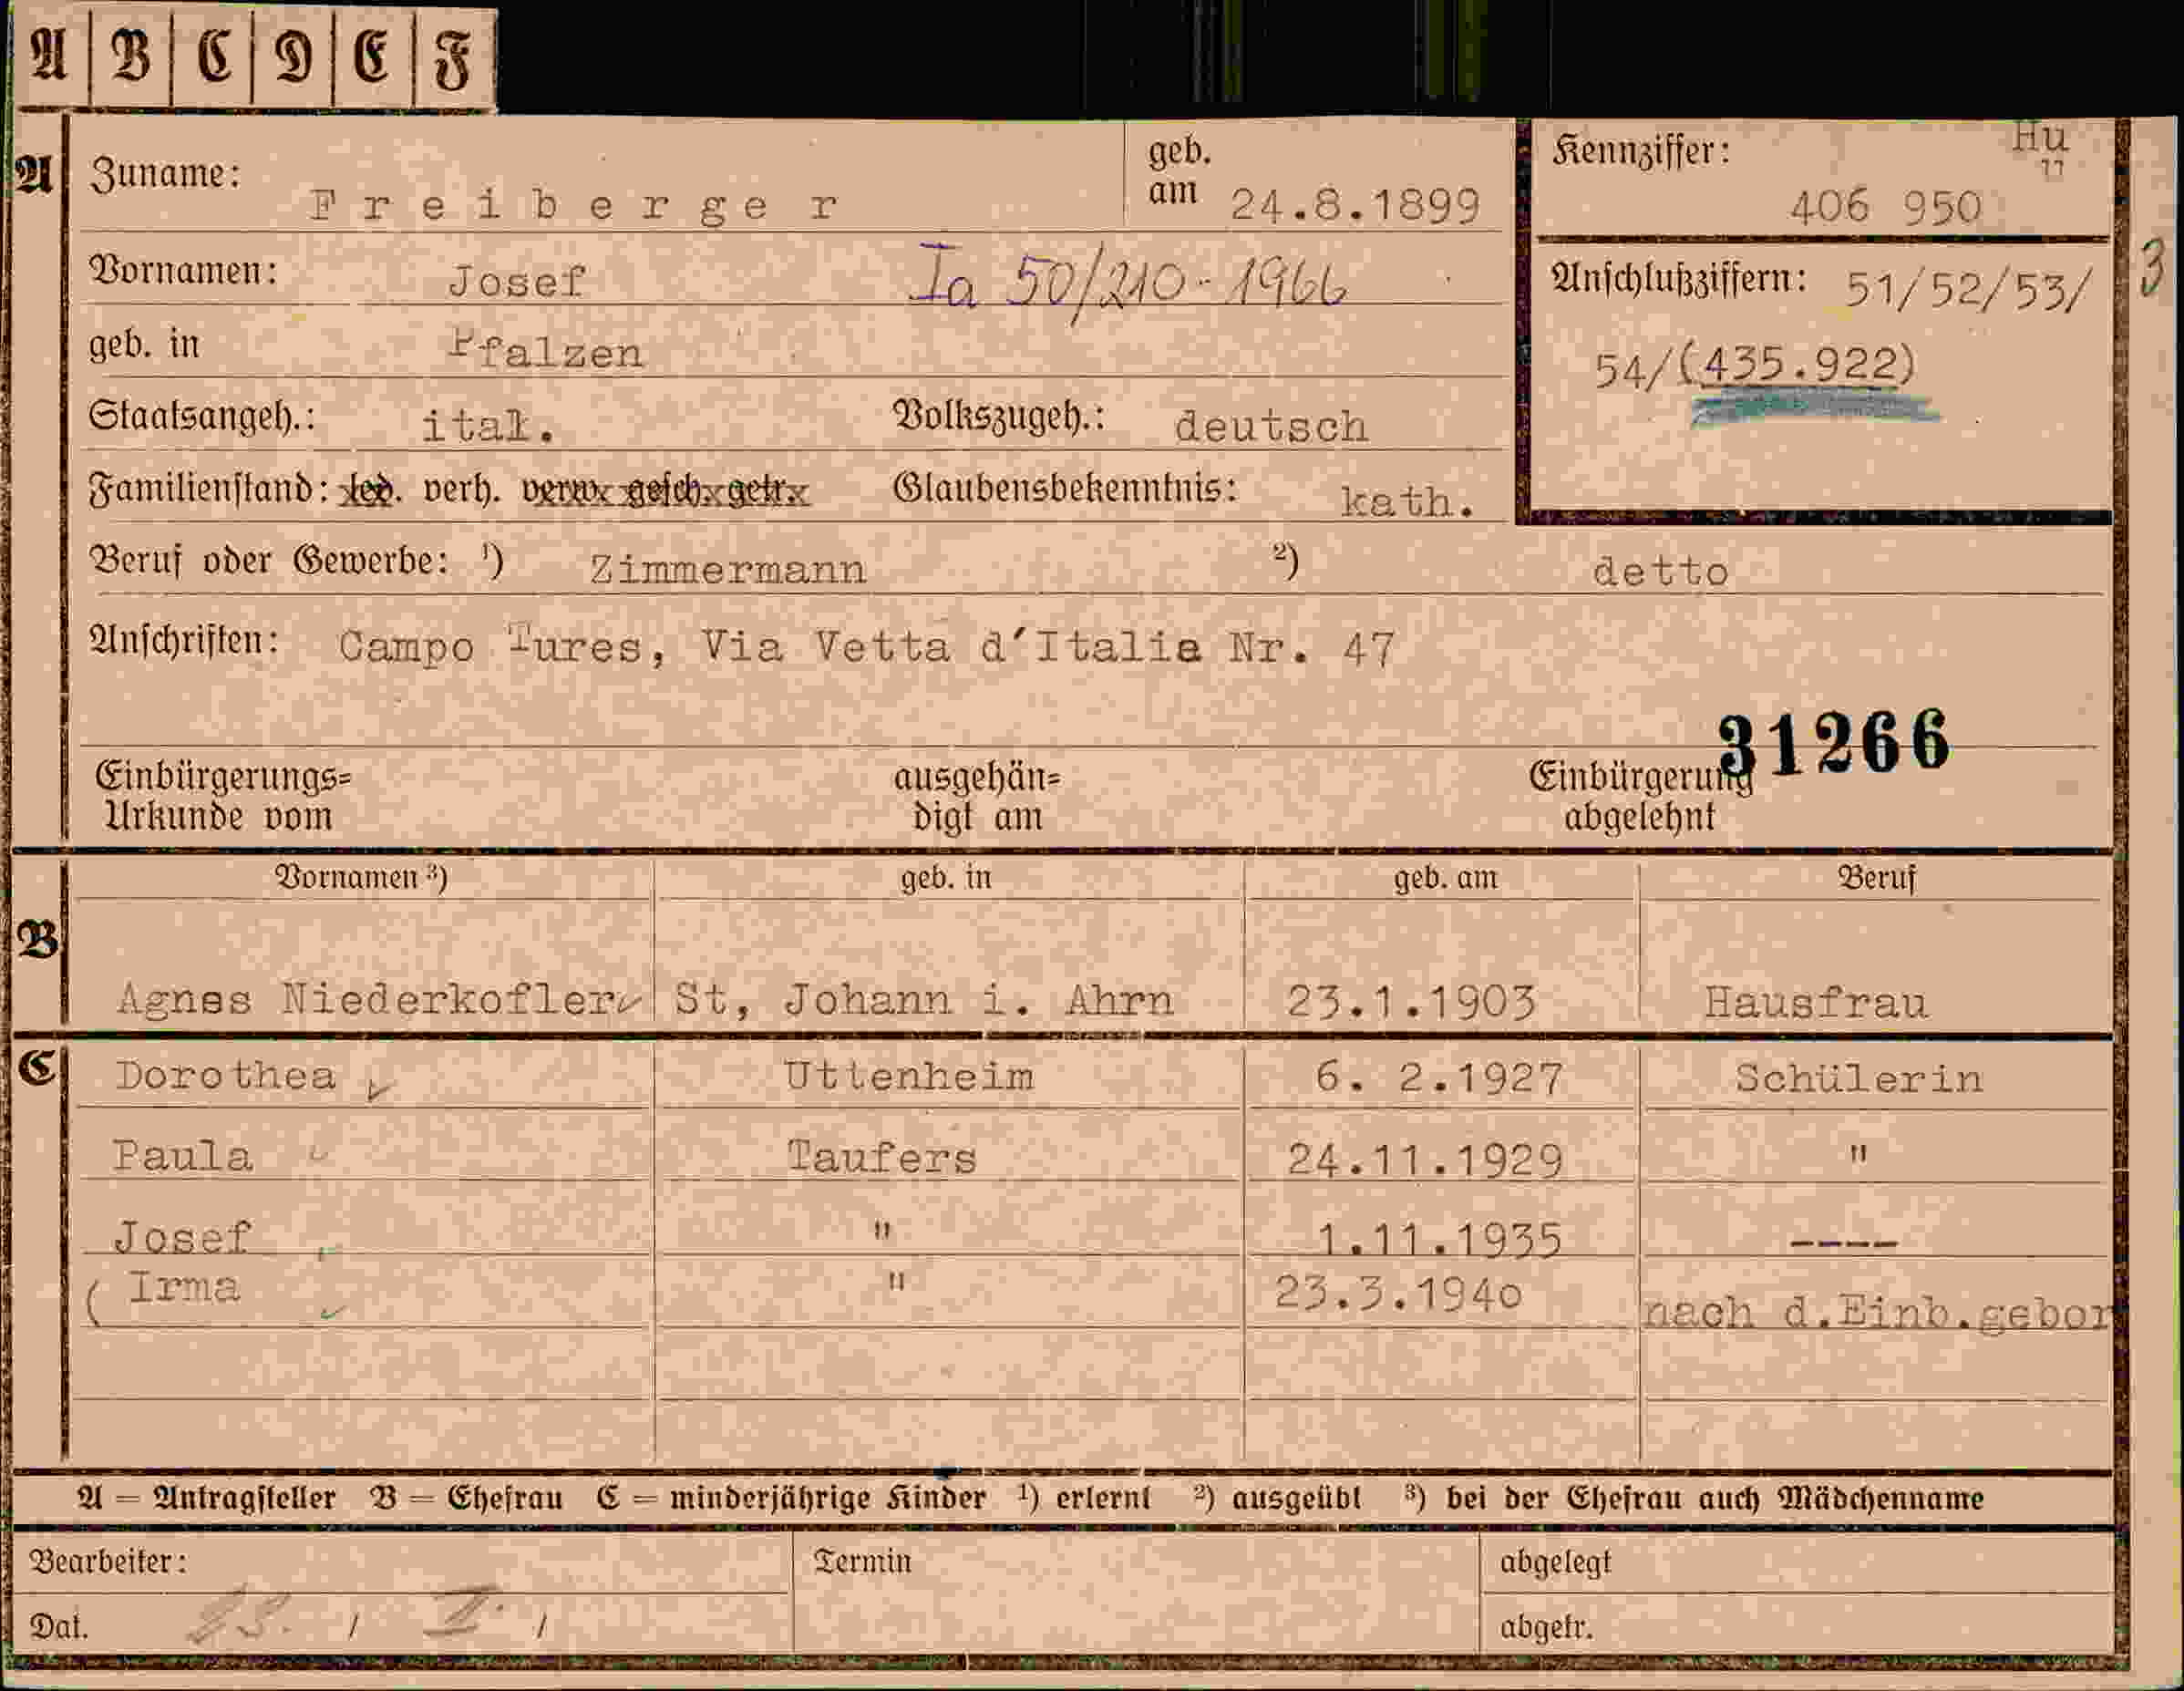 A B C D E F
A Zuname: Freiberger geb. am 24.8.1899 Kennziffer: Hu
"
406 950
Vornamen: Josef Ia 50/210-1966 Anschlußziffern: 51/52/53/ 3
54/(435.922)
geb. in Pfalzen
Staatsangeh.: ital. Volkszugeh.: deutsch
Familienstand: led. verh. verw. gesch. getr. Glaubensbekenntnis: kath.
Beruf oder Gewerbe: ¹) Zimmermann ²) detto
Anschriften: Campo Tures, Via Vetta d'Italia Nr. 47
31266
Einbürgerungs= ausgehän= Einbürgerung
Urkunde vom digt am abgelehnt
Vornamen ³) geb. in geb. am Beruf
B Agnes Niederkofler St, Johann i. Ahrn 23.1.1903 Hausfrau
C Dorothea Uttenheim 6. 2.1927 Schülerin
Paula Taufers 24.11.1929 "
Josef " 1.11.1935 ----
( Irma " 23.3.1940 nach d.Einb.gebor
A = Antragsteller B = Ehefrau C = minderjährige Kinder ¹) erlernt ²) ausgeübt ³) bei der Ehefrau auch Mädchenname
Bearbeiter: Termin abgelegt
Dat. 23. / I. / abgetr.